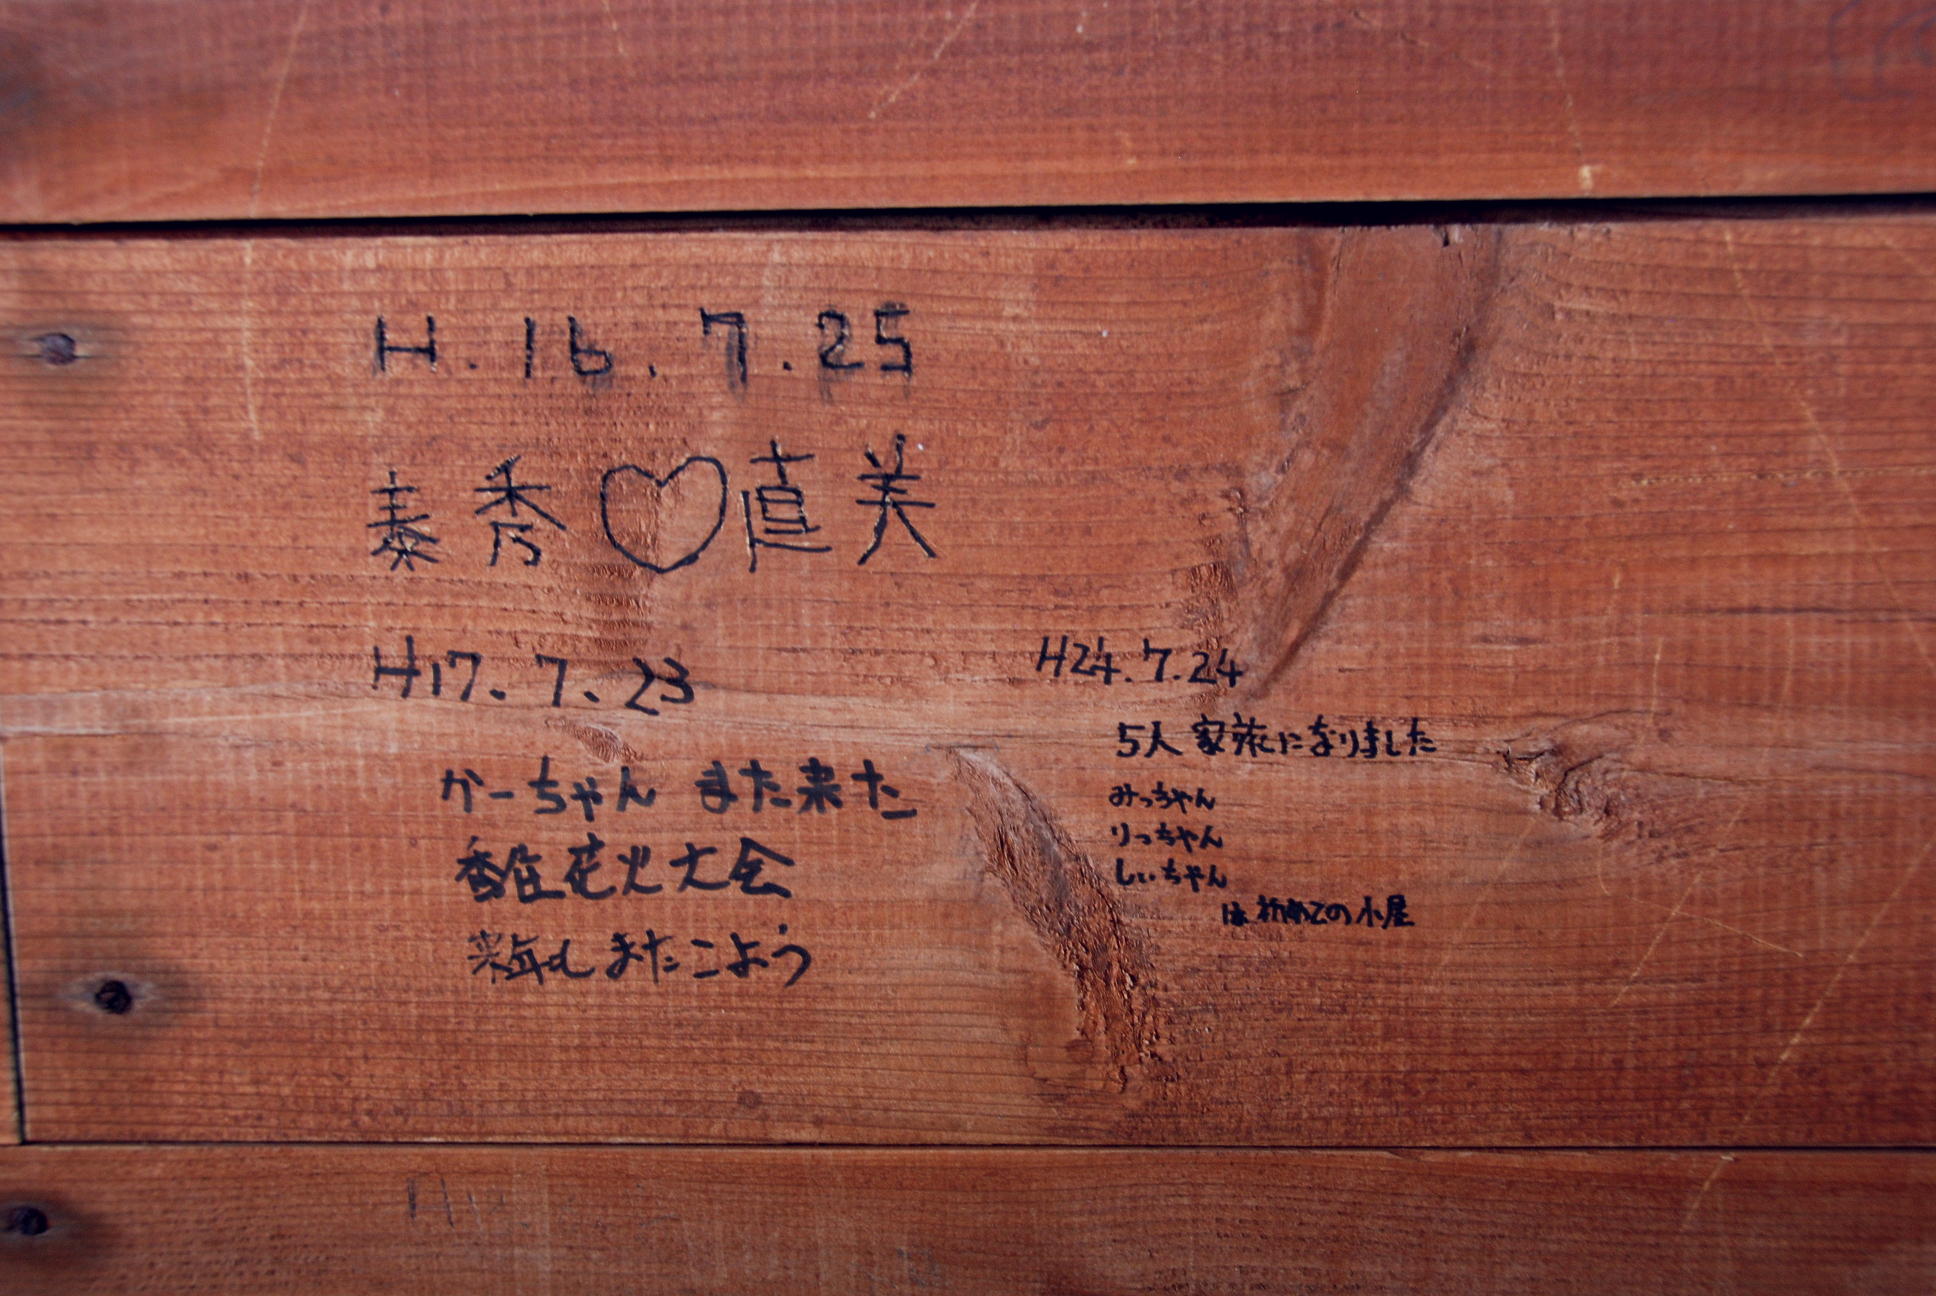 H.16.7.25
泰秀♡直美
H17.7.23
かーちゃん また来た
香住花火大会
来年もまたこよう
H24.7.24
5人家族になりました
みっちゃん
りっちゃん
しぃちゃん
は初めての小屋